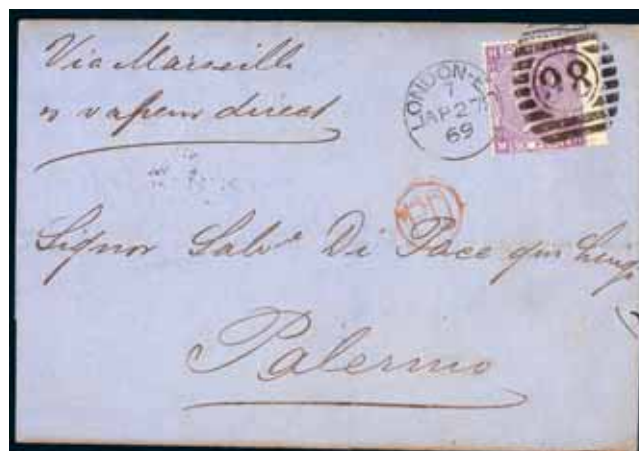 Via Marseille
vapeur direct
LONDON-E
98
7
AP 27
69
PD
Signor Salv.e Di Pace qm Luigi
Palermo